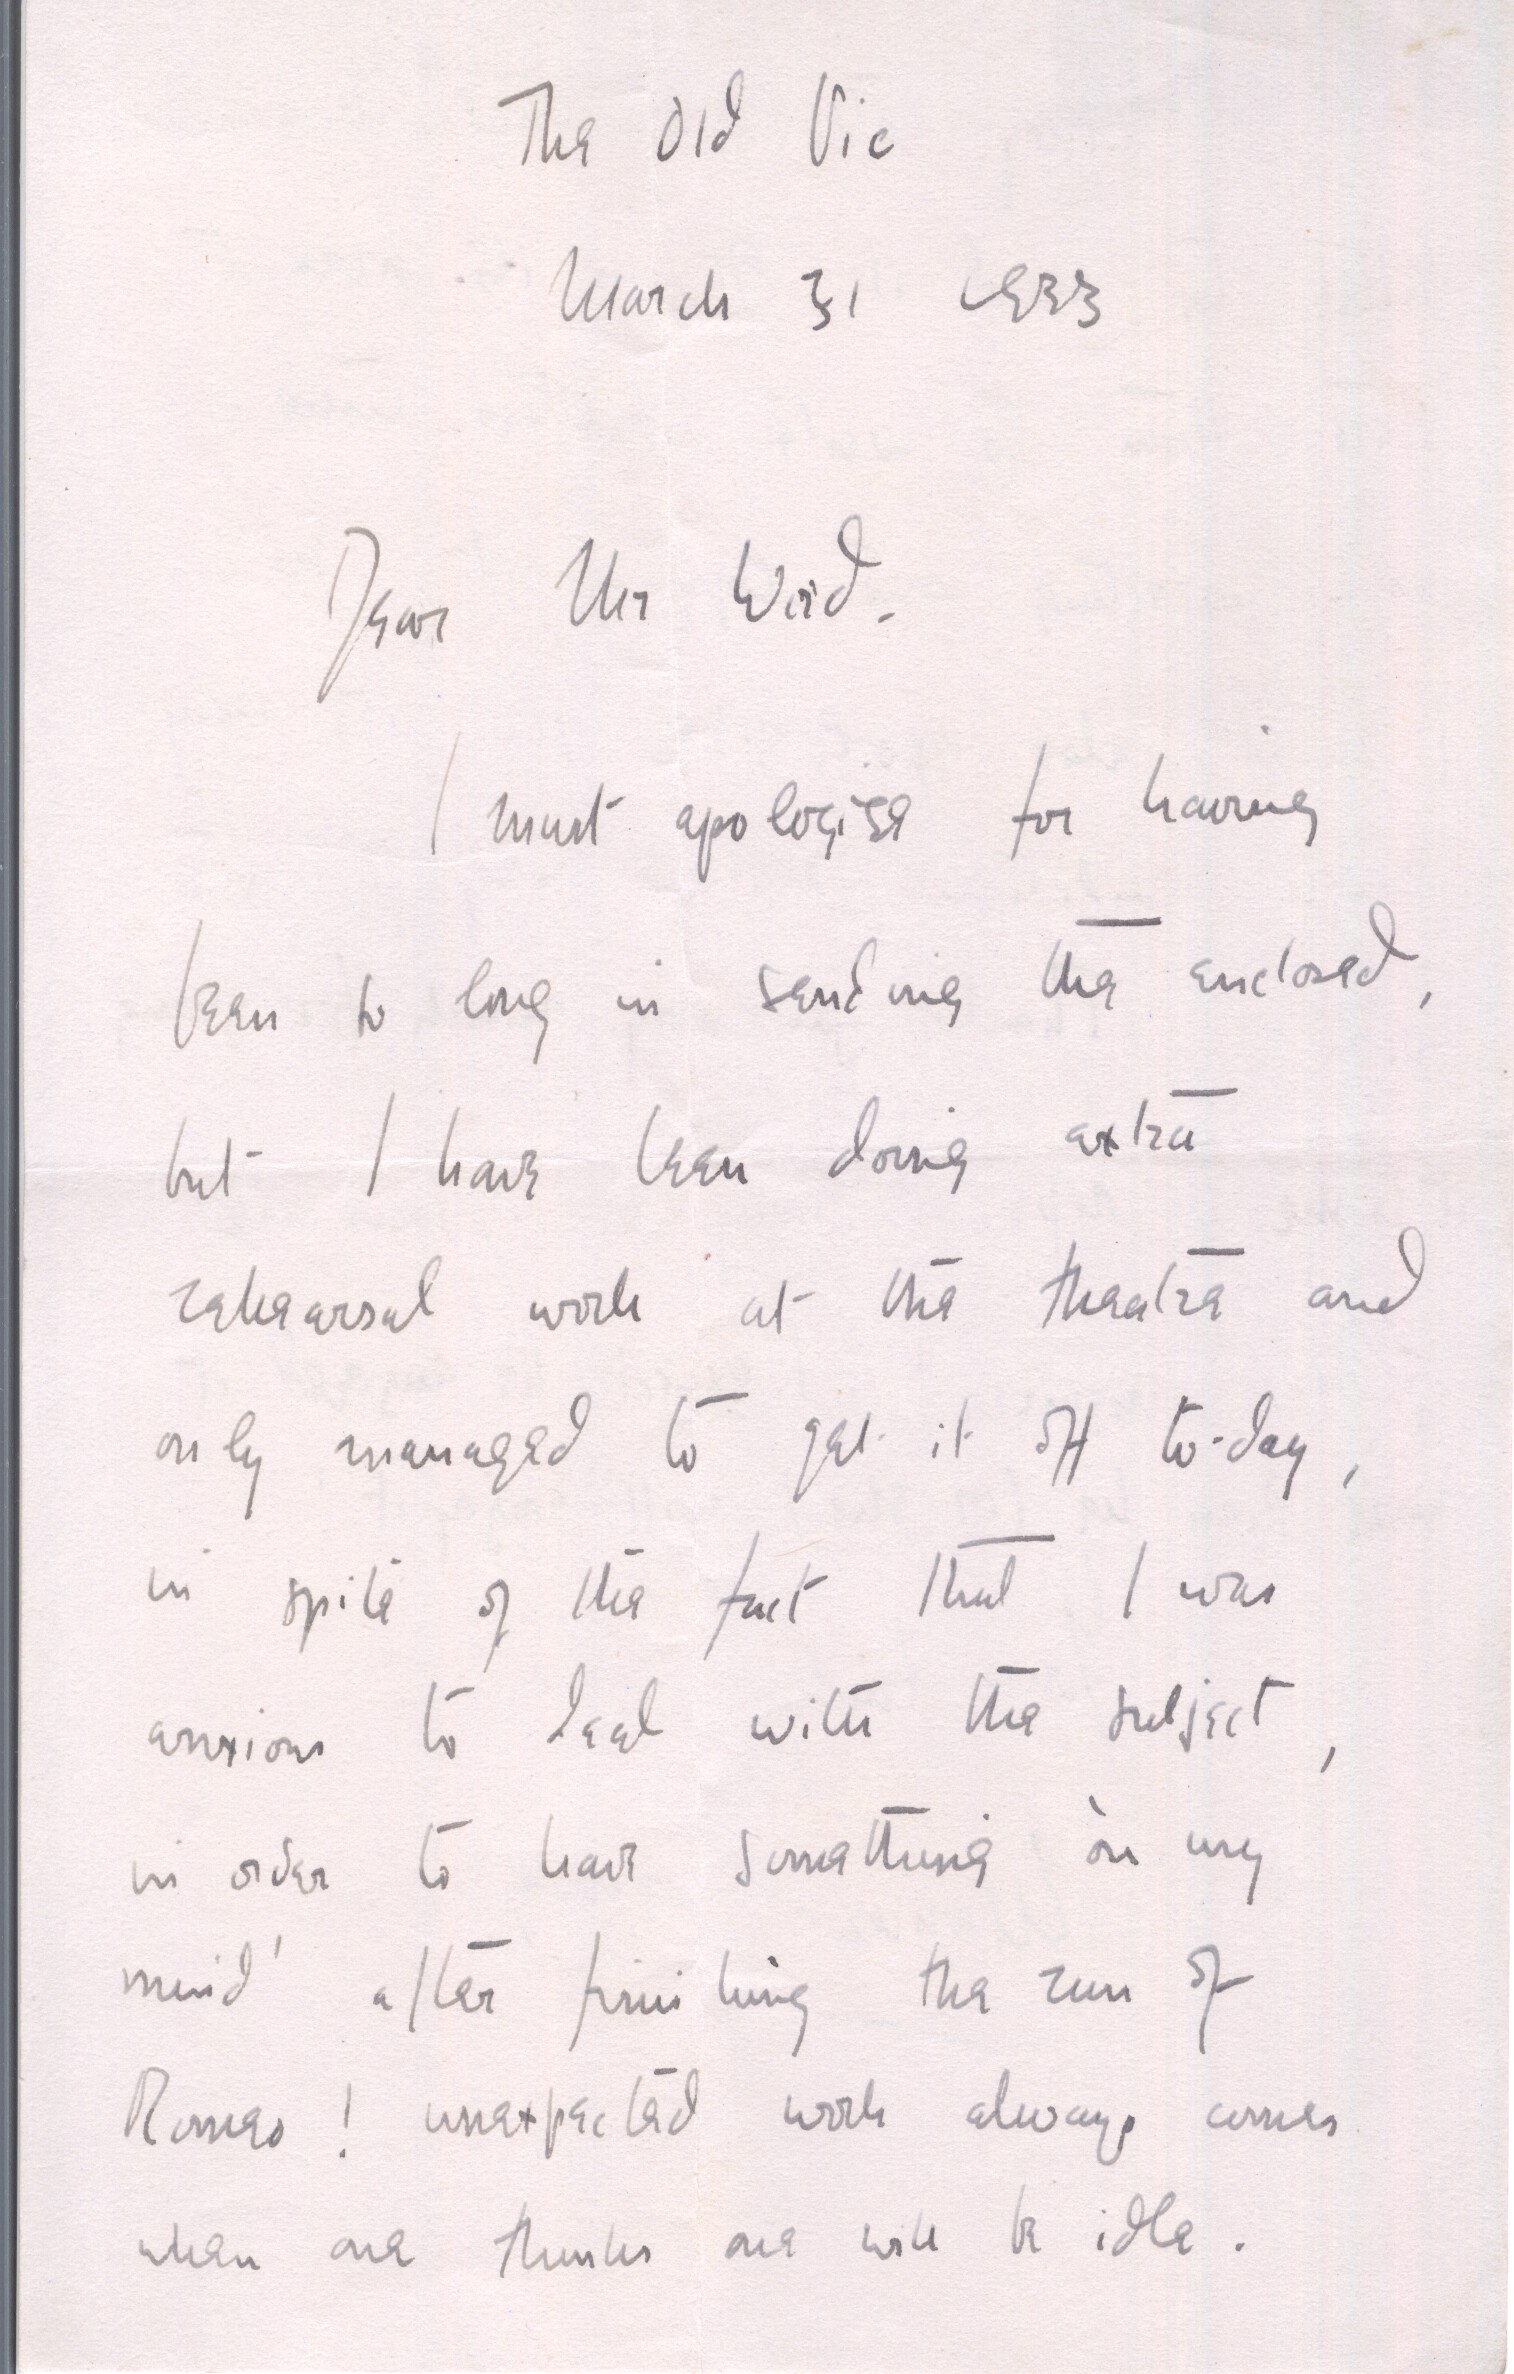 The Old Vic
March 31 1933
Dear Mr
I must apologise for having
been so long in sending the enclosed,
but I have been doing extra
rehearsal work at the theatre and
only managed to get it off to-day,
in spite of the fact that I was
anxious to deal with the subject,
in order to have something 'on my
mind' after finishing the run of
Romeo! unexpected work always comes
when one thinks one will be idle.